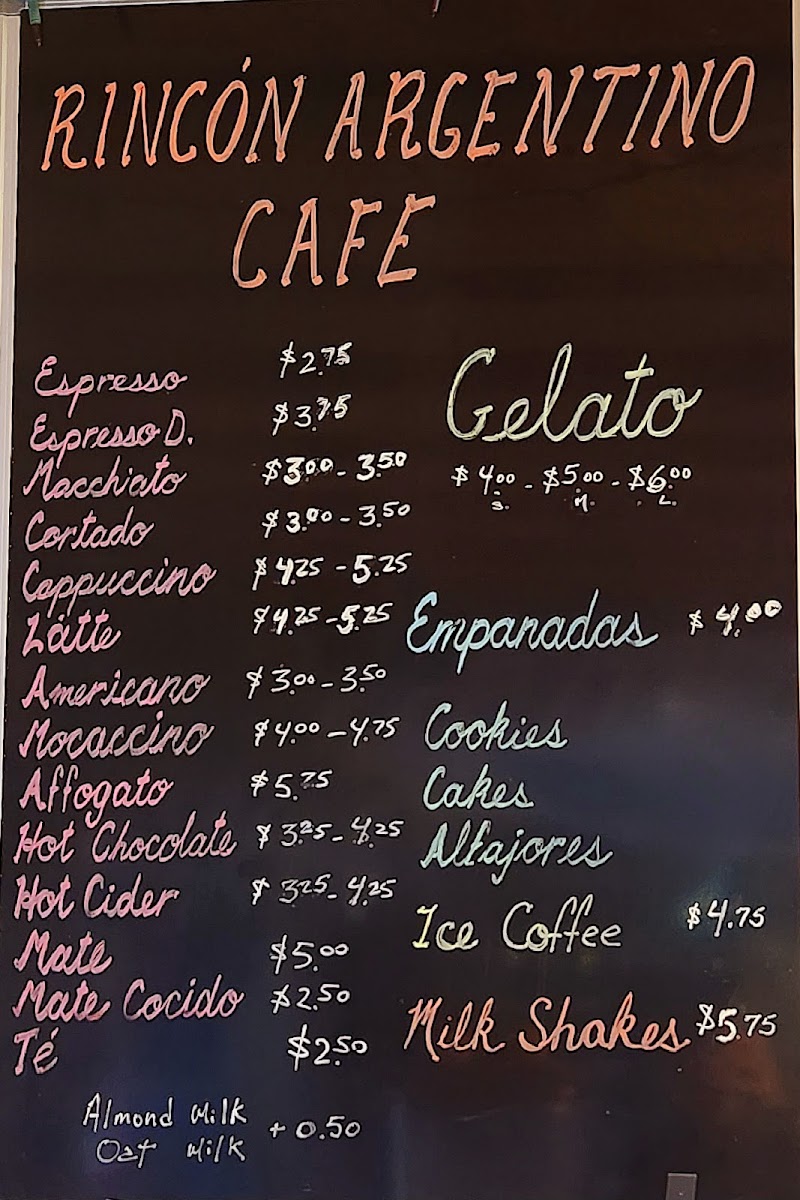 RINCÓN ARGENTINO
CAFE
Espresso $2.75
Espresso D. $3.75
Macchiato $3.00 - 3.50
Cortado $3.00 - 3.50
Cappuccino $4.25 - 5.25
Latte $4.25 - 5.25
Americano $3.00 - 3.50
Mocaccino $4.00 - 4.75
Affogato $5.75
Hot Chocolate $3.25 - 4.25
Hot Cider $3.25 - 4.25
Mate $5.00
Mate Cocido $2.50
Té $2.50
Almond Milk
Oat Milk + 0.50
Gelato
$4.00 - $5.00 - $6.00
S. M. L.
Empanadas $4.00
Cookies
Cakes
Alfajores
Ice Coffee $4.75
Milk Shakes $5.75